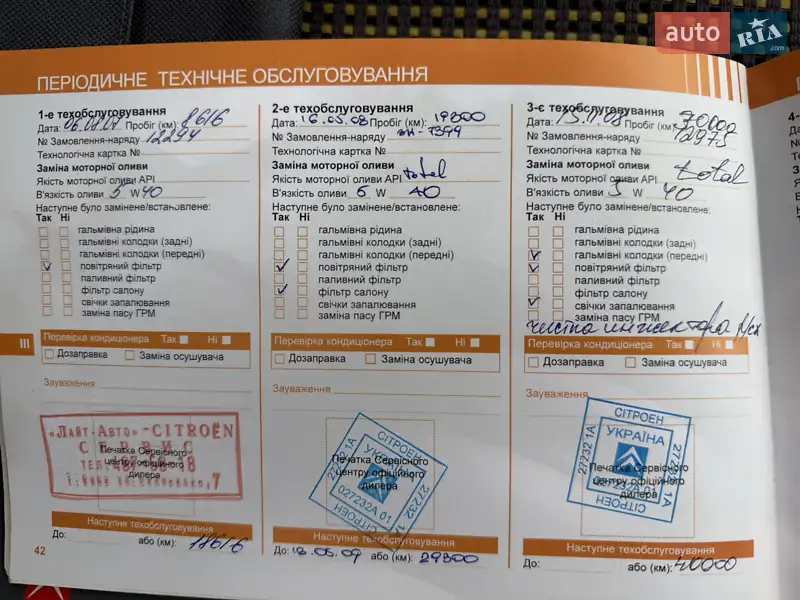 auto RIA .com
ПЕРІОДИЧНЕ ТЕХНІЧНЕ ОБСЛУГОВУВАННЯ
1-е техобслуговування
Дата: 06.08.07 Пробіг (км): 8616
№ Замовлення-наряду 12294
Технологічна картка №
Заміна моторної оливи
Якість моторної оливи API
В'язкість оливи 5 W 40
Наступне було замінене/встановлене:
Так Ні
гальмівна рідина
гальмівні колодки (задні)
гальмівні колодки (передні)
повітряний фільтр
паливний фільтр
фільтр салону
свічки запалювання
заміна пасу ГРМ
Перевірка кондиціонера Так Ні
Дозаправка Заміна осушувача
Зауваження
«Лайт-Авто»-CITROËN
СЕРВІС
ТЕЛ
Печатка Сервісного
центру офіційного
дилера
Наступне техобслуговування
До: або (км): 18616
42
III
2-е техобслуговування
Дата: 16.05.08 Пробіг (км): 19300
№ Замовлення-наряду ЗН-7399
Технологічна картка №
Заміна моторної оливи
Якість моторної оливи API total
В'язкість оливи 5 W 40
Наступне було замінене/встановлене:
Так Ні
гальмівна рідина
гальмівні колодки (задні)
гальмівні колодки (передні)
повітряний фільтр
паливний фільтр
фільтр салону
свічки запалювання
заміна пасу ГРМ
Перевірка кондиціонера Так Ні
Дозаправка Заміна осушувача
Зауваження
СІТРОЕН
УКРАЇНА
27232 1А
027232А 01
СІТРОЕН
27232 1А
Печатка Сервісного
центру офіційного
дилера
Наступне техобслуговування
До: 16.05.09 або (км): 29300
3-є техобслуговування
Дата: 15.11.08 Пробіг (км):
№ Замовлення-наряду 12975
Технологічна картка №
Заміна моторної оливи
Якість моторної оливи API total
В'язкість оливи 5 W 40
Наступне було замінене/встановлене:
Так Ні
гальмівна рідина
гальмівні колодки (задні)
гальмівні колодки (передні)
повітряний фільтр
паливний фільтр
фільтр салону
свічки запалювання
заміна пасу ГРМ
чистка инжектора
Перевірка кондиціонера Так Ні
Дозаправка Заміна осушувача
Зауваження
СІТРОЕН
УКРАЇНА
27232 1А
027232А 01
СІТРОЕН
27232 1А
Печатка Сервісного
центру офіційного
дилера
Наступне техобслуговування
До: або (км): 40000
4-